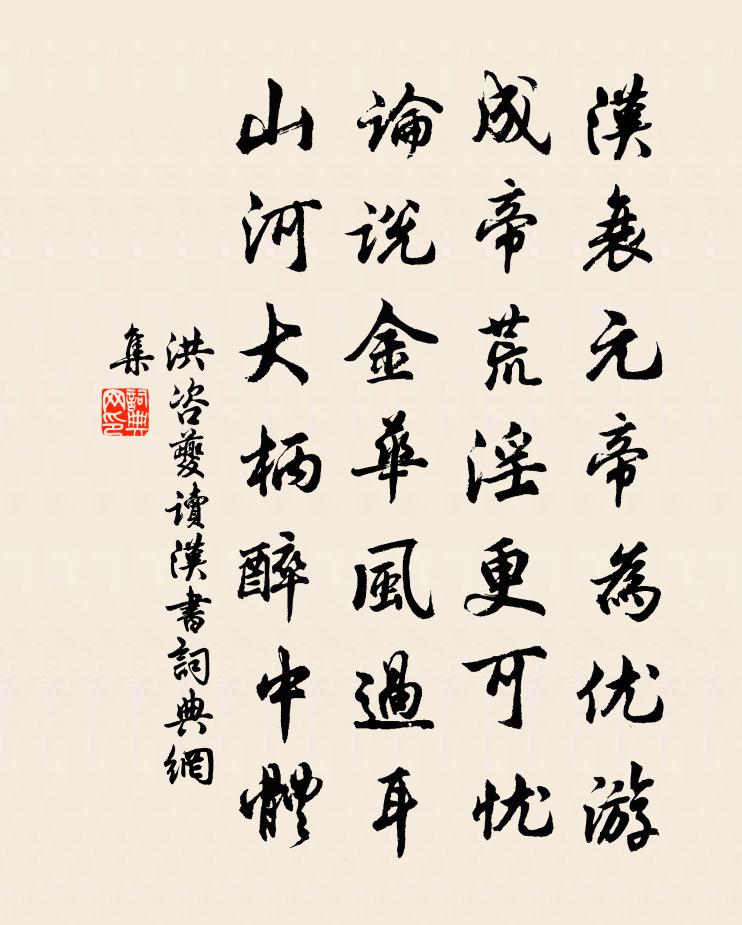 漢衰元帝為优游
成帝荒淫更可忧
論說金華風過耳
山河大柄醉中體
洪咨夔讀漢書詞典網
集
詞典
网印